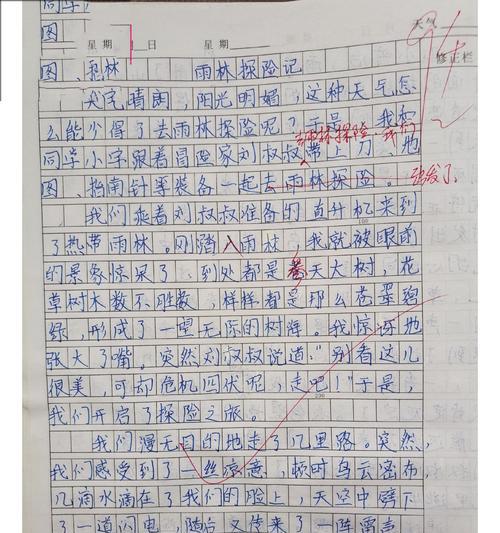 同学
天气
图
星期 日 星期
修正栏
图、雨林 雨林探险记
天气晴朗，阳光明媚，这种天气怎
么能少得了去雨林探险呢？于是，我和
去雨林探险 我们
同学小宇跟着冒险家刘叔叔带上刀、地
图、指南针等装备一起去雨林探险。
出发了
我们乘着刘叔叔准备的直升机来到
了热带雨林。刚踏入雨林，我就被眼前
的景象惊呆了，到处都是参天大树，花
草树木数不胜数，样样都是那么苍翠碧
绿，形成了一望无际的树海。我惊讶地
张大了嘴。突然刘叔叔说道："别看这儿
很美，可却危机四伏呢！走吧！"于是，
我们开启了探险之旅。
我们漫无目的地走了几里路。突然，
我们感受到了一丝凉意，顿时乌云密布，
几滴水滴在了我们的脸上，天空中劈下
了一道闪电，随后又传来了一阵雷声